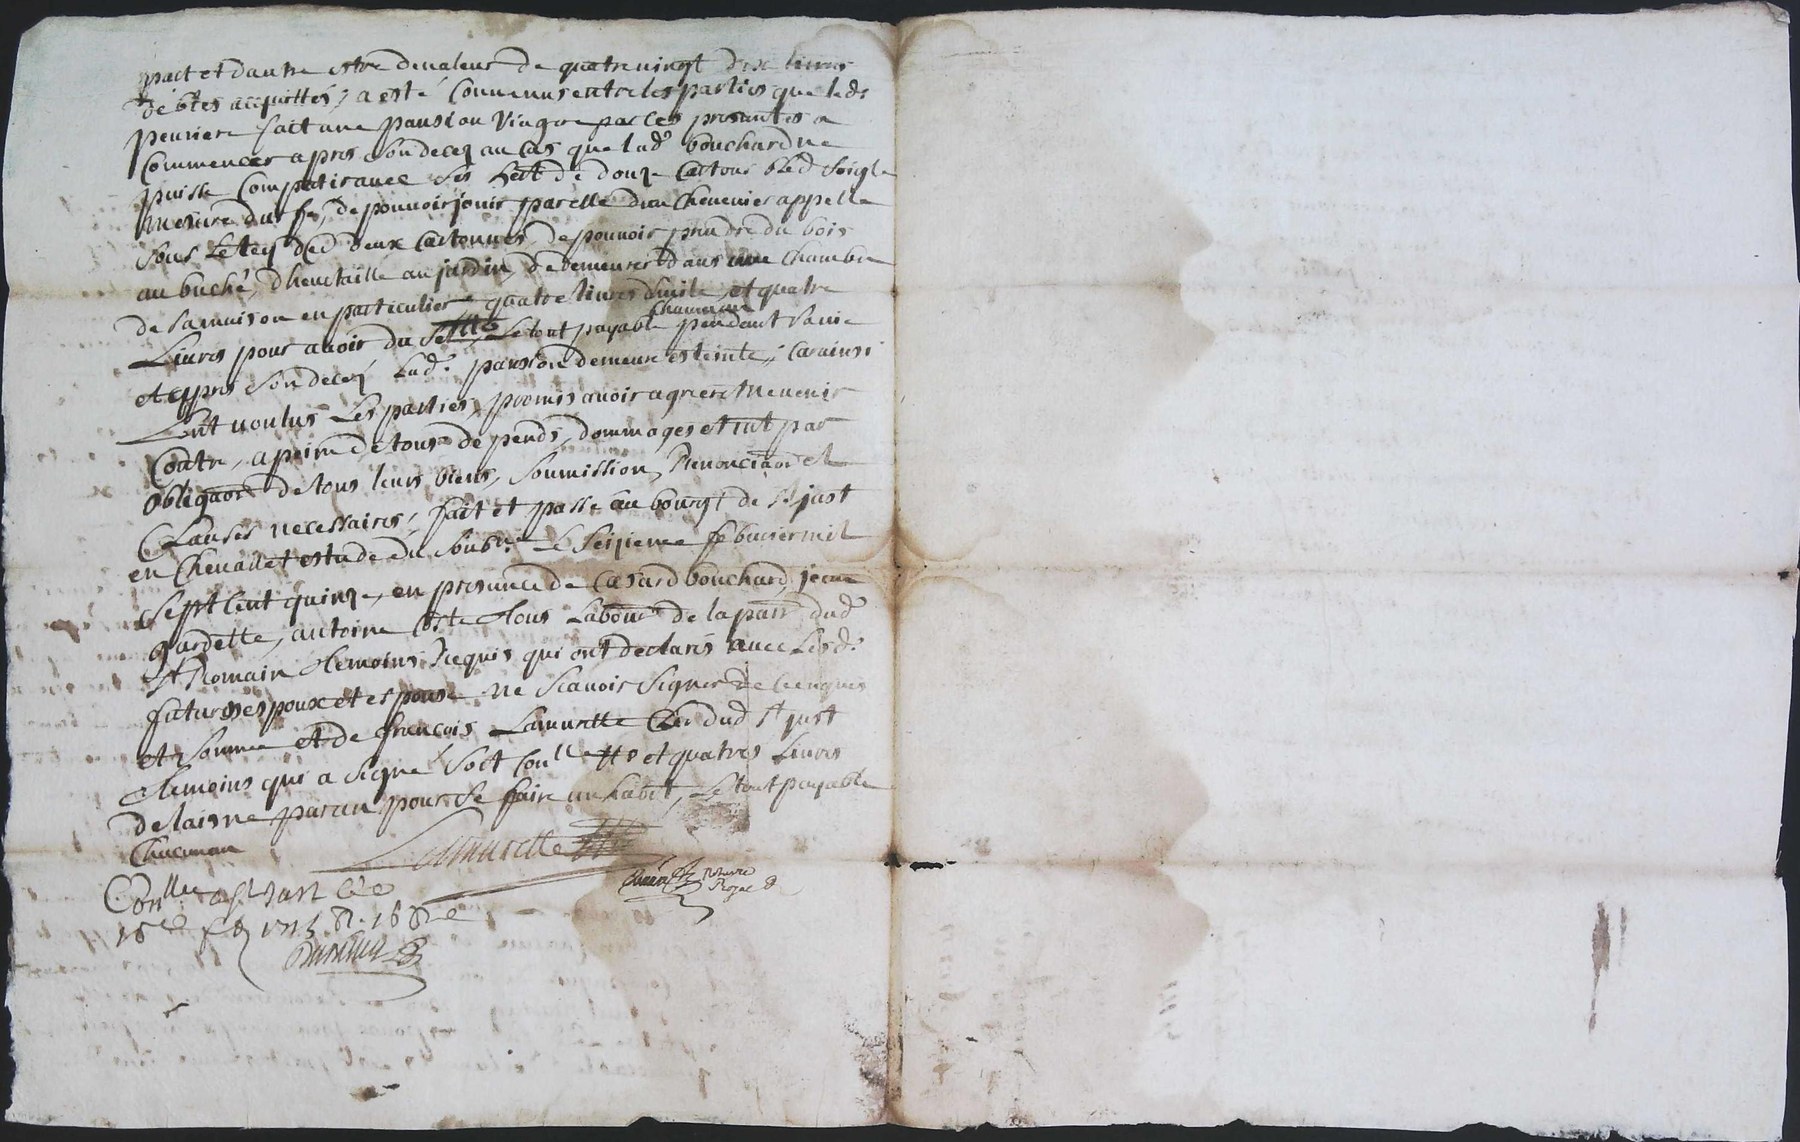 part et dautre estre de valeur de quatre vingt dix livres
debtes acquittés, a esté Convenus entre les parties que led.
peuriere fait une pansion Viagere par ces presantes a
Commencer apres son decez au cas que lad. bouchard ne
puisse Compatir avec ses de douze Cartons bled Seigle
Mesure durfé, de pouvoir jouir par elle dun Chenevier appellé
Sous deux Cartonnes, de pouvoir prendre du bois
au buché, dheurtaille au jardin, de demeurer dans une Chambre
de sa maison en particulier quatre livres dhuile, et quatre
Livres pour avoir du sel, Le tout payable Chacun an pendant sa vie
et appres son decez Lad. pansion demeure esteinte, Car ainsi
Lont voulus Les parties, promis avoir agreer Ne venir
Contre, a peine de tous dépends, dommages et int par
obligaon de tous leurs biens, Soumission, Renonciaon et
Clauses necessaires, fait et passé au bourgt de St just
en Chevallet estude du Soubne. Le Seizieme febvrier mil
Sept Cent quinze, en presance de Cesard bouchard, jean
gardette, antoine Coste tous Labour de la parr dud.
St Romain temoins Requis qui ont declarés avec Lesd.
futurs espoux et espouse ne scavoir signer de ce enquis
et Sommé et de françois Lamurette Cler dud St just
temoins qui a signé Soit Conllé et quatres Livres
de laisne par an pour se faire un habit, Le tout payable
Chacun an
Lamurette
notaire
Royal
Conllé a St
16e feb 1715